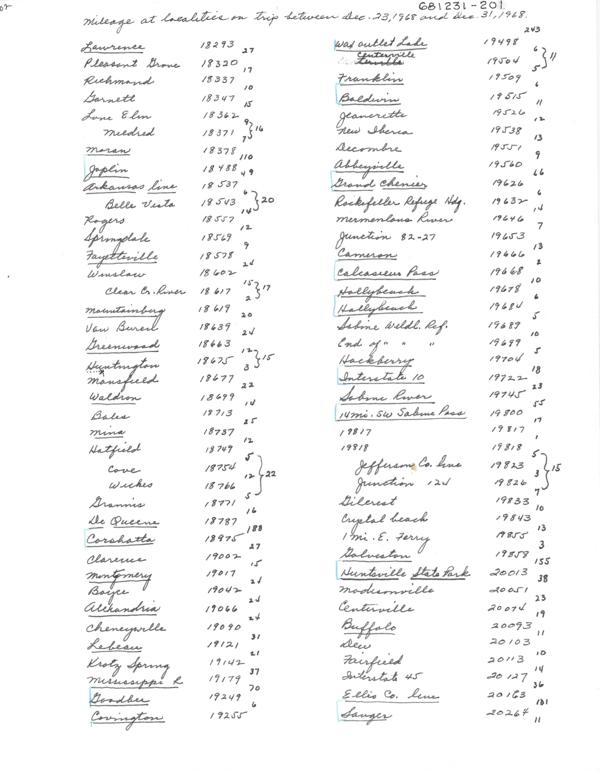 GB1231-201
Mileage at localities on trip between Dec. 23, 1968 and Dec. 31, 1968.
Lawrence 18293 27
Pleasant Grove 18320 17
Richmond 18337 10
Garnett 18347 15
Lone Elm 18362 9
Mildred 18371 7 } 16
Moran 18378 110
Joplin 18488 49
Arkansas line 18537 6
Bella Vista 18543 14 } 20
Rogers 18557 12
Springdale 18569 9
Fayetteville 18578 24
Winslow 18602
Clear Cr. River 18617 15 2 } 17
Mountainburg 18619 20
Van Buren 18639 24
Greenwood 18663 12
Huntington 18675 3 } 15
Mansfield 18677 22
Waldron 18699 14
Bates 18713 25
Mina 18737 12
Hatfield 18749 5
Cove 18754 12 } 22
Wickes 18766 5
Grannis 18771 16
De Queene 18787 188
Corshatta 18975 27
Clarence 19002 15
Montgomery 19017 24
Boyce 19042 24
Alexandria 19066 24
Cheneyville 19090 31
Lebeau 19121 21
Krotz Spring 19142 37
Mississippi R 19179 70
Goodbee 19249 6
Covington 19255
243
Wax outlet Lake 19498 6
Centerville 19504 5 } 11
Franklin 19509 6
Baldwin 19515 11
Jeanerette 19526 12
New Iberia 19538 13
Decombre 19551 9
Abbeyville 19560 66
Grand Chenier 19626 6
Rockefeller Refuge Hdq. 19632 14
Mermentau River 19646 7
Junction 82-27 19653 13
Cameron 19666 2
Calcasieu Pass 19668 10
Hollybeach 19678 6
Hollybeach 19684 5
Sabine Wildl. Ref. 19689 10
End of " " 19699 5
Hackberry 19704 18
Interstate 10 19722 23
Sabine River 19745 55
14 mi. SW Sabine Pass 19800 17
19817 19817 1
19818 19818 5
Jefferson Co. line 19823 3 } 15
Junction 124 19826 7
Gilcrest 19833 10
Crystal beach 19843 13
1 mi. E. Ferry 19855 3
Galveston 19858 155
Huntsville State Park 20013 38
Madisonville 20051 23
Centerville 20074 19
Buffalo 20093 11
Dew 20103 10
Fairfield 20113 14
Interstate 45 20127 36
Ellis Co. line 20163 101
Sanger 20264 11